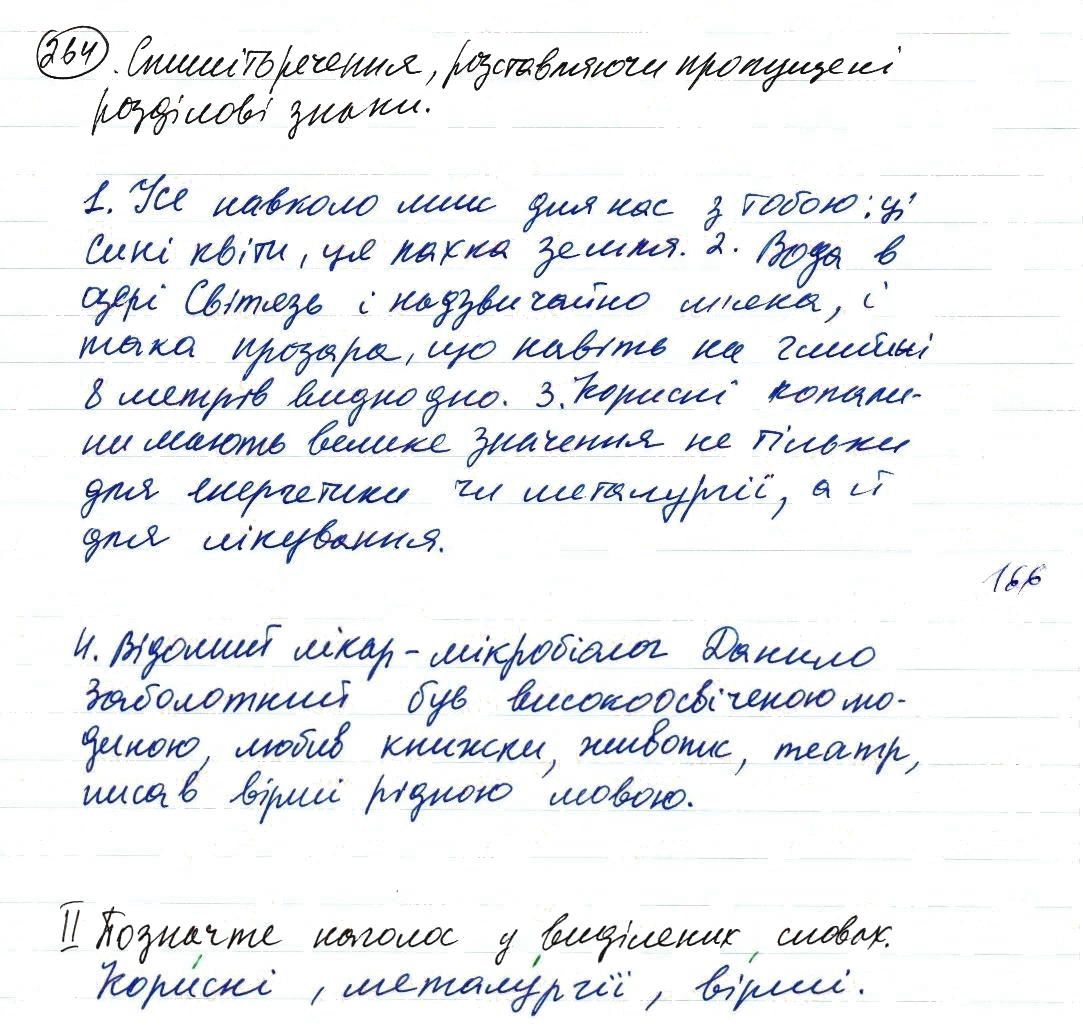 264. Спишіть речення, розставляючи пропущені
розділові знаки.
1. Усе навколо лиш для нас з тобою: ці
сині квіти, ця пахка земля. 2. Вода в
озері Світязь і надзвичайно мілка, і
така прозора, що навіть на глибині
8 метрів видно дно. 3. Корисні копали-
ни мають велике значення не тільки
для енергетики чи металургії, а й
для лікування.
166
4. Відомий лікар-мікробіолог Данило
Заболотний був високоосвіченою лю-
диною, любив книжки, живопис, театр,
писав вірші рідною мовою.
II Позначте наголос у виділених словах.
Кори́сні, металу́ргії, ві́рші.